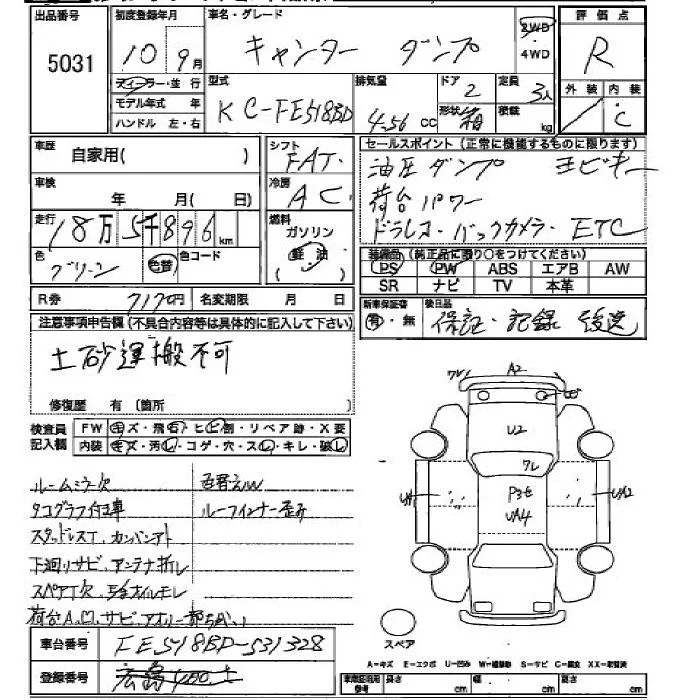 出品番号
5031
初度登録年月
10年9月
車名・グレード
キャンター ダンプ
2WD
4WD
評価点
R
外装 内装
C
ディーラー・並行
モデル年式 年
ハンドル 左・右
型式
KC-FE518BD
排気量
4.56 CC
ドア
2
形状
箱
定員
3人
積載
kg
車歴
自家用( )
シフト
FAT
セールスポイント (正常に機能するものに限ります)
油圧ダンプ ヨビキー
荷台パワー
ドラレコ・バックカメラ・ETC
車検
年 月( 日)
冷房
AC
走行
18万5千896km
燃料
ガソリン
軽油
色
グリーン
色替
色コード
装備品 (純正品に限り○をつけてください)
PS PW ABS エアB AW
SR ナビ TV 本革
R券 7170円
名変期限 月 日
新車保証書
有・無
後日品
保証・記録 後送
注意事項申告欄(不具合内容等は具体的に記入して下さい)
土砂運搬不可
修復歴 有 (箇所
検査員
記入欄
FW キズ・飛石・ヒビ割・リペア跡・X要
内装 キズ・汚レ・コゲ・穴・スレ・キレ・破レ
ルームミラー欠
タコグラフ付車
スタッドレスT.
下廻りサビ、アンテナ折レ
スペアT欠
荷台
ルーフインナー歪み
A2
U2
UA4
UA2
スペア
A=キズ E=エクボ U=凹み W=補修跡 S=サビ C=腐食 XX=交換済
車台番号
FE518BD-531328
登録番号
広島400
参考
長さ cm 幅 cm 高さ cm